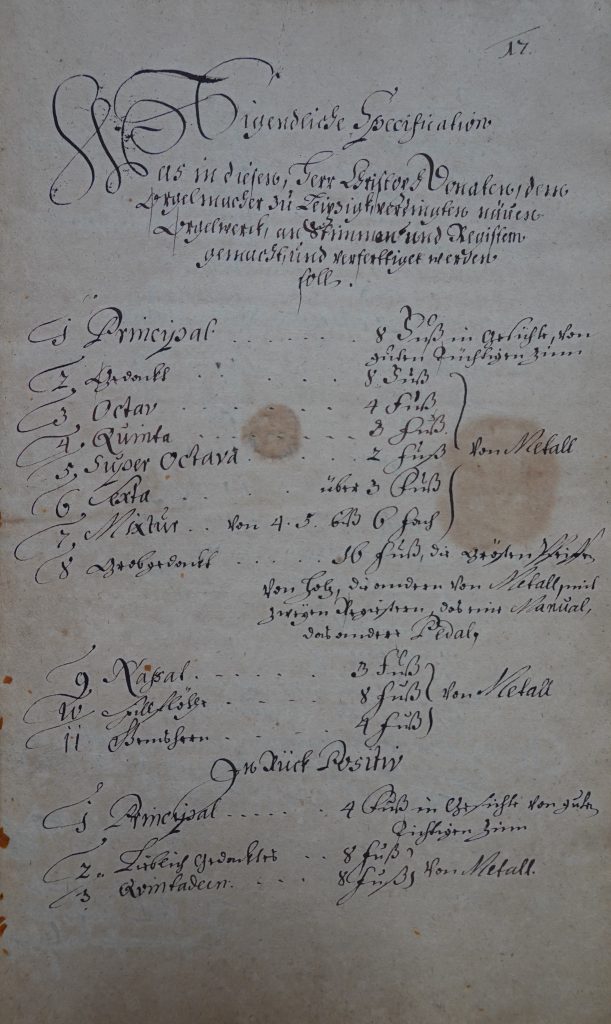 17.
Eigendliche Specification
Was in diesen, Herr Christoph Donaten, dem
Orgelmacher zu Leipzigk, verdingten näuen
Orgelwerck, an Stimmen und Registern
gemacht, und verferttiget werden
soll.
1 Principal . . . . . . 8 Fuß in Gesichte, von
guten Tüchtigen Zinn
2, Gedackt . . . . . . 8 Fuß
3, Octav . . . . . . 4 Fuß
4. Quinta . . . . . . 3 Fuß
5, Super Octava . . . . . 2 Fuß von Metall
6 Sexta . . . . . über 3 Fuß
7, Mixtur . . von 4. 5. biß 6 fach
8 Grobgedackt . . . . . . 16 Fuß, die Grösten Pfeiffen
von Holz, die andern von Metall, mit
zweyen Registern, das eine Manual,
das andere Pedal,
9 Naßat . . . . . . 3 Fuß
10 . . . . 8 Fuß von Metall
11 Gemshorn . . . . . 4 Fuß
Im Rück Positiv
1 Principal . . . . . . 4 Fuß in Gesichte von guten
Tichtigen Zinn
2. Lieblich Gedacktes . . 8 Fuß
3 Quintadein. . . . . 8 Fuß von Metall.